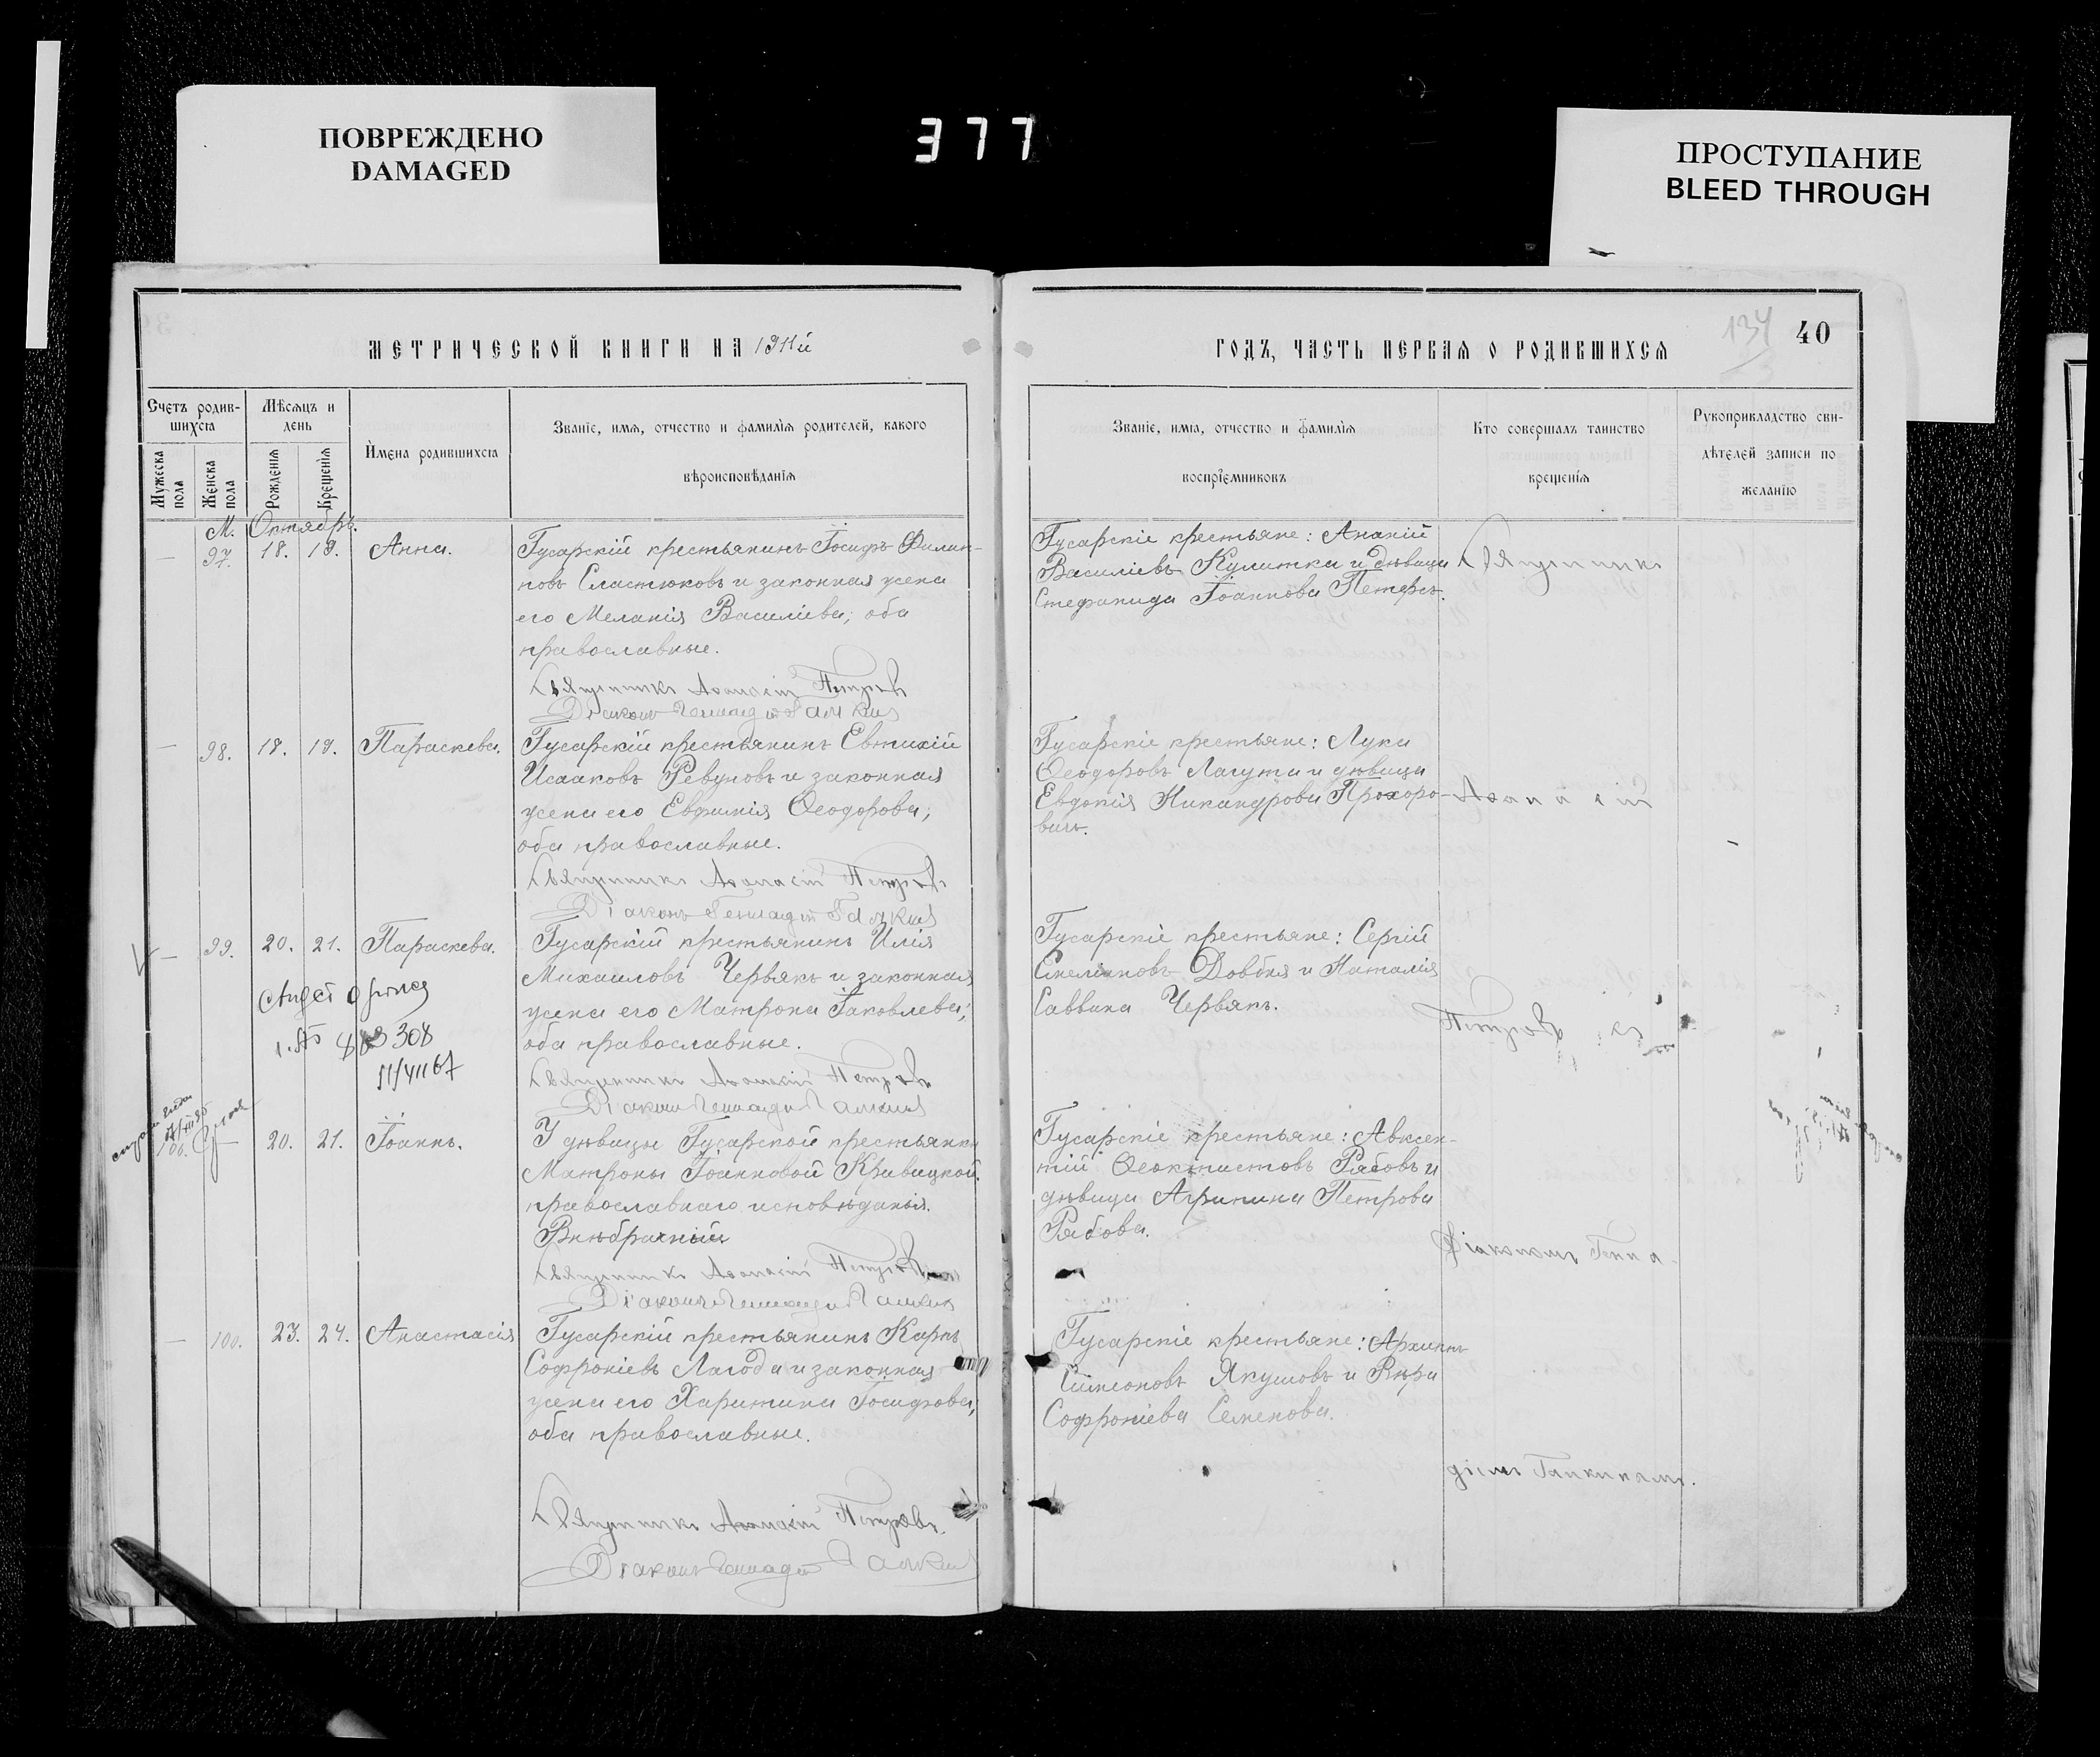 ПОВРЕЖДЕНО
DAMAGED
377
ПРОСТУПАНИЕ
BLEED THROUGH
МЕТРИЧЕСКОЙ КНИГИ НА 1911й
Счетъ родив-
шихся
Мѣсяцъ и
день
Мужеска
пола
Женска
пола
Рожденія
Крещенія
Имена родившихся
Званіе, имя, отчество и фамилія родителей, какого
вѣроисповѣданія
М. Октябрь.
97. 18. 19. Анна.
Гусарскій крестьянинъ Іосифъ Филип-
повъ Сластюковъ и законная жена
его Меланія Василіева; оба
православные.
Священникъ Аѳанасій Петровъ
Діаконъ Геннадій Галкинъ
98. 18. 19. Параскева.
Гусарскій крестьянинъ Евтихій
Исааковъ Ревуновъ и законная
жена его Евфимія Ѳеодорова;
оба православные.
Священникъ Аѳанасій Петровъ
Діаконъ Геннадій Галкинъ
99. 20. 21. Параскева.
Гусарскій крестьянинъ Илія
Михаиловъ Червякъ и законная
жена его Матрона Іаковлева;
оба православные.
308
Священникъ Аѳанасій Петровъ
Діаконъ Геннадій Галкинъ
106. 20. 21. Іоаннъ.
У дѣвицы Гусарской крестьянки
Матроны Іоанновой Кравицкой.
православнаго исповѣданія.
Внѣбрачный
Священникъ Аѳанасій Петровъ
Діаконъ Геннадій Галкинъ
100. 23. 24. Анастасія
Гусарскій крестьянинъ Карпъ
Софроніевъ Лагода и законная
жена его Харитина Іосифова;
оба православные.
Священникъ Аѳанасій Петровъ.
Діаконъ Геннадій Галкинъ
134
40
ГОДЪ, ЧАСТЬ ПЕРВАЯ О РОДИВШИХСЯ
Званіе, имя, отчество и фамилія
воспріемниковъ
Кто совершалъ таинство
крещенія
Рукоприкладство сви-
дѣтелей записи по
желанію
Гусарскіе крестьяне: Ананій
Василіевъ Кулитка и дѣвица
Стефанида Іоаннова Петеръ.
Священникъ
Гусарскіе крестьяне: Лука
Ѳеодоровъ Лагута и дѣвица
Евдокія Никандрова Прохоро-
вичъ.
Аѳанасій
Гусарскіе крестьяне: Сергій
Емеліановъ Довбня и Наталія
Саввина Червякъ.
Петровъ съ
Гусарскіе крестьяне: Авксен-
тій Ѳеоктистовъ Рябовъ и
дѣвица Агрипина Петрова
Рябова.
Діакономъ Генна-
Гусарскіе крестьяне: Архиппъ
Симеоновъ Якушовъ и Вѣра
Софроніева Семенова.
діемъ Галкинымъ.